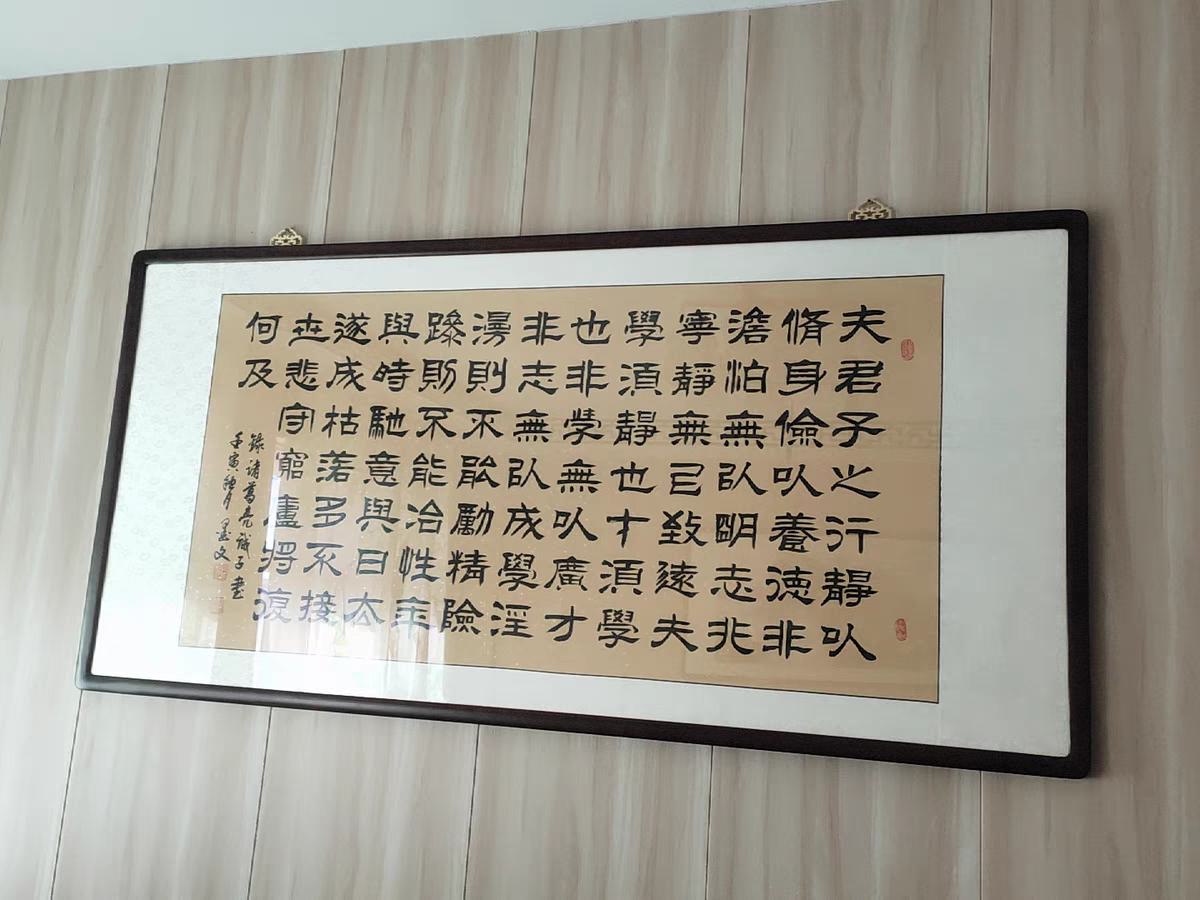 夫君子之行靜以
脩身儉以養德非
澹泊無以明志非
寧靜無已致遠夫
學須靜也才須學
也非學無以廣才
非志無以成學淫
漫則不能勵精險
躁則不能冶性年
與時馳意與日去
遂成枯落多不接
世悲守窮廬將復
何及
錄諸葛亮誡子書
壬寅 月 墨文